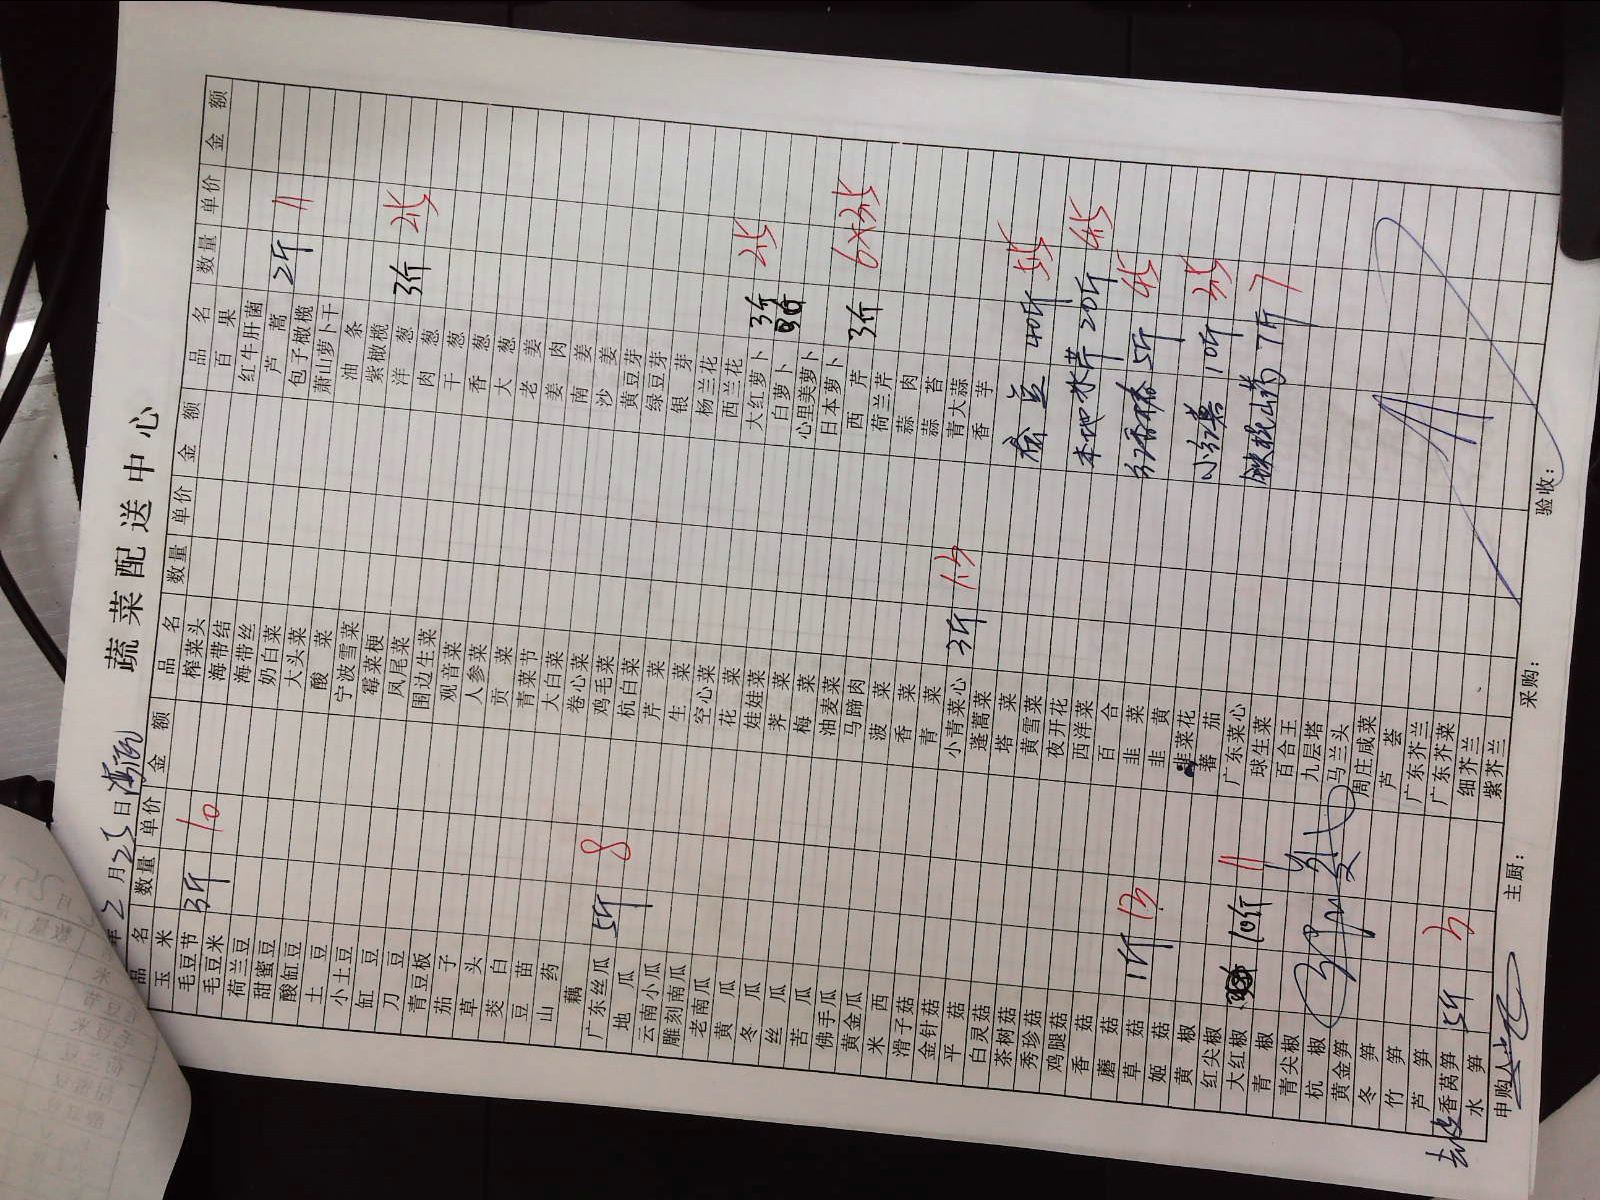 蔬菜配送中心
年 2 月 25 日
品名 数量 单价 金额 品名 数量 单价 金额 品名 数量 单价 金额
玉米 榨菜头 百果
毛豆节 3斤 10 海带结 红牛肝菌
毛豆米 海带丝 芦蒿 2斤 11
荷兰豆 奶白菜 包子橄榄
甜蜜豆 大头菜 萧山萝卜干
酸缸豆 酸菜 油条
土豆 宁波雪菜 紫橄榄
小土豆 霉菜梗 洋葱 3斤 2.5
缸豆 凤尾菜 肉葱
刀豆 围边生菜 干葱
青豆板 观音菜 香葱
茄子 人参菜 大葱
草头 贡菜 老姜
茭白 青菜节 姜肉
豆苗 大白菜 南姜
山药 卷心菜 沙姜
藕 鸡毛菜 黄豆芽
广东丝瓜 5斤 8 杭白菜 绿豆芽
地瓜 芹菜 银芽
云南小瓜 生菜 杨兰花
雕刻南瓜 空心菜 西兰花
老南瓜 花菜 大红萝卜 3斤 2.5
黄瓜 娃娃菜 白萝卜
冬瓜 荠菜 心里美萝卜
丝瓜 梅菜 日本萝卜
苦瓜 油麦菜 西芹 3斤 6×3.5
佛手瓜 马蹄肉 荷兰芹
黄金瓜 菠菜 蒜肉
米西 香菜 蒜苔
滑子菇 青菜 青大蒜
金针菇 小青菜心 3斤 13 香芋
平菇 蓬蒿菜
白灵菇 塔菜 蚕豆 40斤 5.5
茶树菇 黄雪菜
秀珍菇 夜开花 本地水芹 20斤 4.5
鸡腿菇 西洋菜
香菇 百合 5斤 4.5
蘑菇 韭菜
草菇 1斤 13 韭黄
姬菇 韭菜花 小红薯 10斤 3.5
黄椒 蕃茄
红尖椒 广东菜心 铁棍山药 7斤 7
大红椒 10斤 11 球生菜
青椒 百合王
青尖椒 九层塔
杭椒 马兰头
黄金笋 周庄咸菜
冬笋 芦荟
竹笋 广东芥兰
芦笋 广东芥菜
去皮香莴笋 5斤 3 细芥兰
水笋 紫芥兰
申购人 主厨： 采购： 验收：